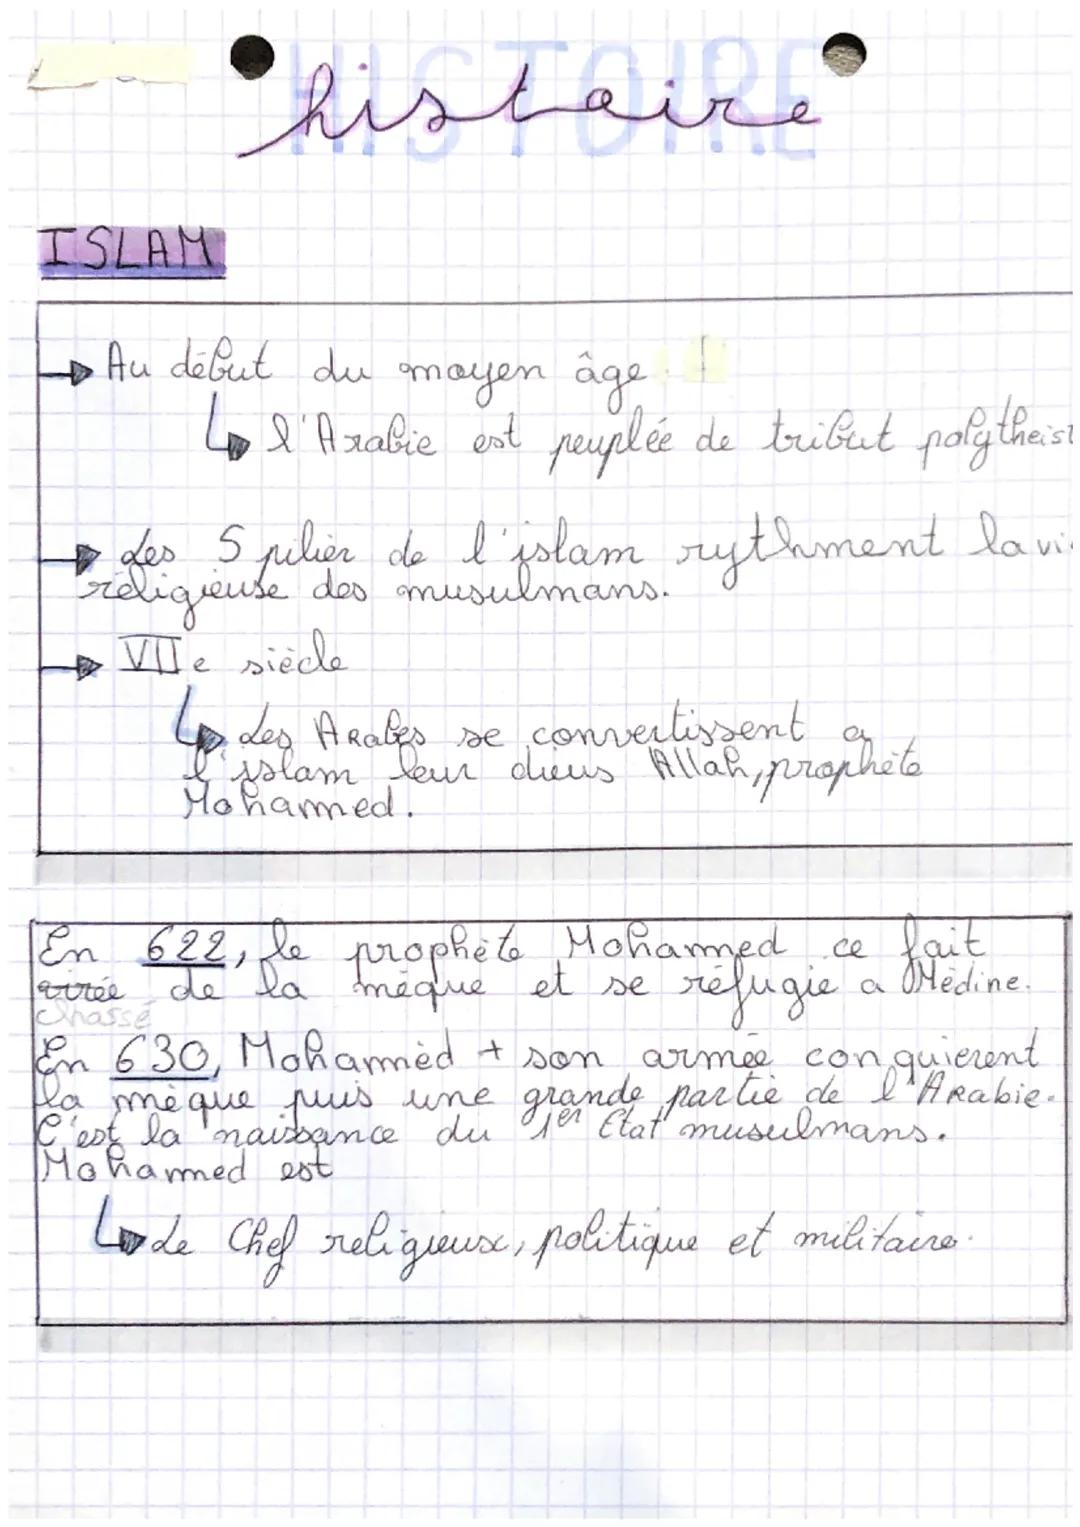 HISTOIRE
histoire
ISLAM
→ Au début du moyen âge
↳ l'Arabie est peuplée de tribut polytheist
→ Les 5 pilier de l'islam rythment la vi
réligieuse des musulmans.
→ VII e siècle
↳ Les Arabes se convertissent a
l'islam leur dieus Allah, prophète
Mohammed.
En 622, le prophète Mohammed ce fait
de la mèque et se réfugie a Médine.
chassé
En 630, Mohammed + son armée conquierent
la mèque puis une grande partie de l'Arabie.
C'est la naissance du 1er Etat musulmans.
Mohammed est
↳ Le Chef religieux, politique et militaire.